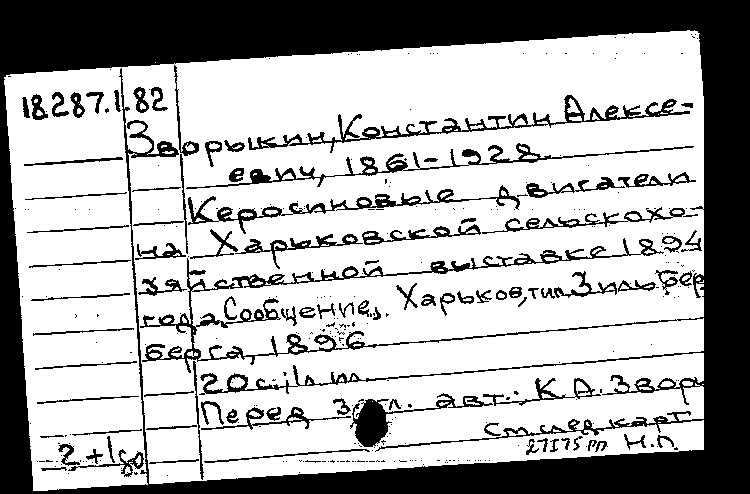 18.287.1.82
Зворыкин, Константин Алексе-
евич, 1861-1928.
Керосиновые двигатели
на Харьковской сельскохо-
зяйственной выставке 1894
года. Сообщение. Харьков, тип. Зильбер
берга, 1896.
20 с.; 1 л. ил.
Перед загл. авт.: К.А. Звор
См. след. карт
27175 рп Н.П.
2+1